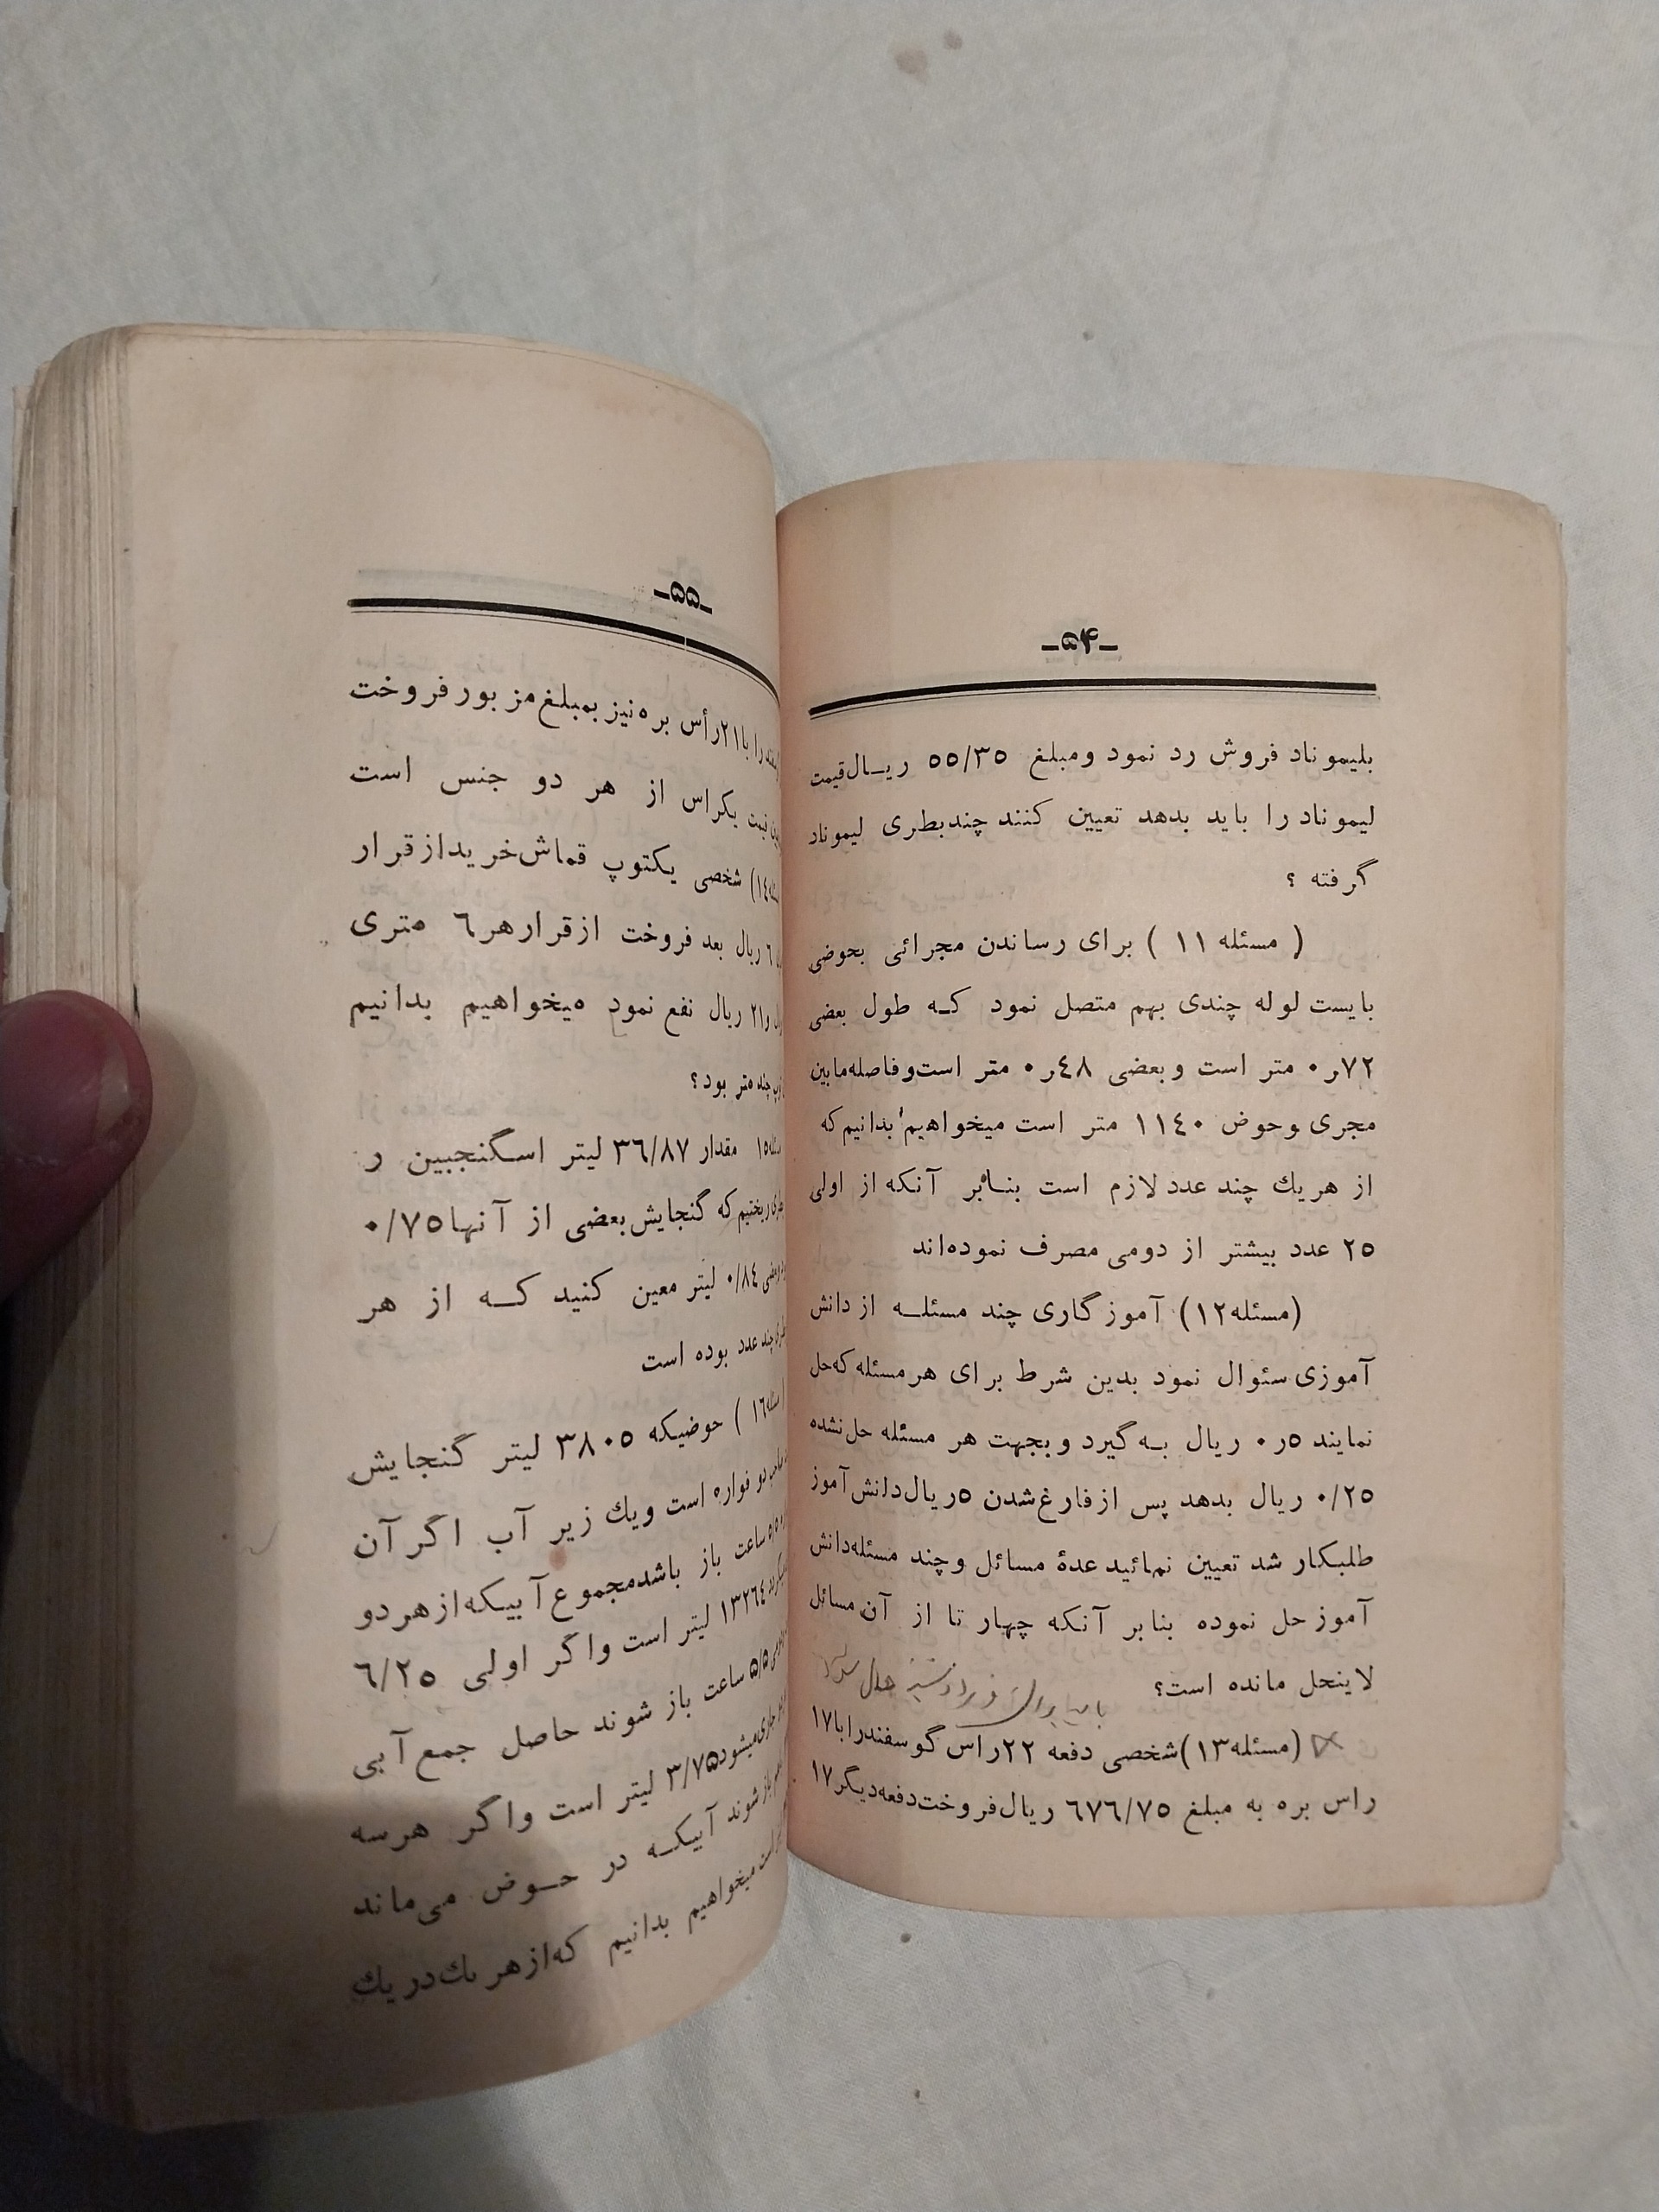 ـ۵۴ـ
بلیموناد فروش رد نمود ومبلغ ٥٥/٣٥ ریـال قیمت
لیموناد را باید بدهد تعیین کنند چند بطری لیموناد
گرفته ؟
( مسئله ١١ ) برای رساندن مجرائی بحوضی
بایست لوله چندی بهم متصل نمود کـه طول بعضی
٧٢ر٠ متر است وبعضی ٤٨ر٠ متر است وفاصله مابین
مجری وحوض ١١٤٠ متر است میخواهیم بدانیم که
از هریك چند عدد لازم است بنابر آنکه از اولی
٢٥ عدد بیشتر از دومی مصرف نموده‌اند
(مسئله١٢) آموزگاری چند مسئلـه از دانش
آموزی سئوال نمود بدین شرط برای هرمسئله که حل
نمایند ٥ر٠ ریال بـه گیرد وبجهت هر مسئله حل نشده
٠/٢٥ ریال بدهد پس از فارغ شدن ٥ریال دانش آموز
طلبکار شد تعیین نمائید عدهٔ مسائل وچند مسئله دانش
آموز حل نموده بنابر آنکه چهار تا از آن مسائل
لاینحل مانده است؟
(مسئله١٣) شخصی دفعه ٢٢راس گوسفند را با١٧
راس بره به مبلغ ٦٧٦/٧٥ ریال فروخت دفعه دیگر١٧
ـ۵۵ـ
را با٢١رأس بره نیز بمبلغ مزبور فروخت
قیمت یکراس از هر دو جنس است
١٤) شخصی یکتوپ قماش خرید از قرار
٦ ریال بعد فروخت از قرار هر ٦ متری
٢١ ریال نفع نمود میخواهیم بدانیم
چند متر بود؟
١٥ مقدار ٣٦/٨٧ لیتر اسگنجبین ر
ریختیم که گنجایش بعضی از آنها ٠/٧٥
٠/٨٤ لیتر معین کنید کـه از هر
چند عدد بوده است
١٦ ) حوضیکه ٣٨٠٥ لیتر گنجایش
دو فواره است ویك زیر آب اگر آن
ساعت باز باشد مجموع آبیکه از هر دو
١٣٢٦٤ لیتر است واگر اولی ٦/٢٥
٥/٥ ساعت باز شوند حاصل جمع آبی
جاری میشود ٣/٧٥ لیتر است واگر هرسه
باز شوند آبیکـه در حـوض می‌ماند
است میخواهیم بدانیم که از هر یك در یك